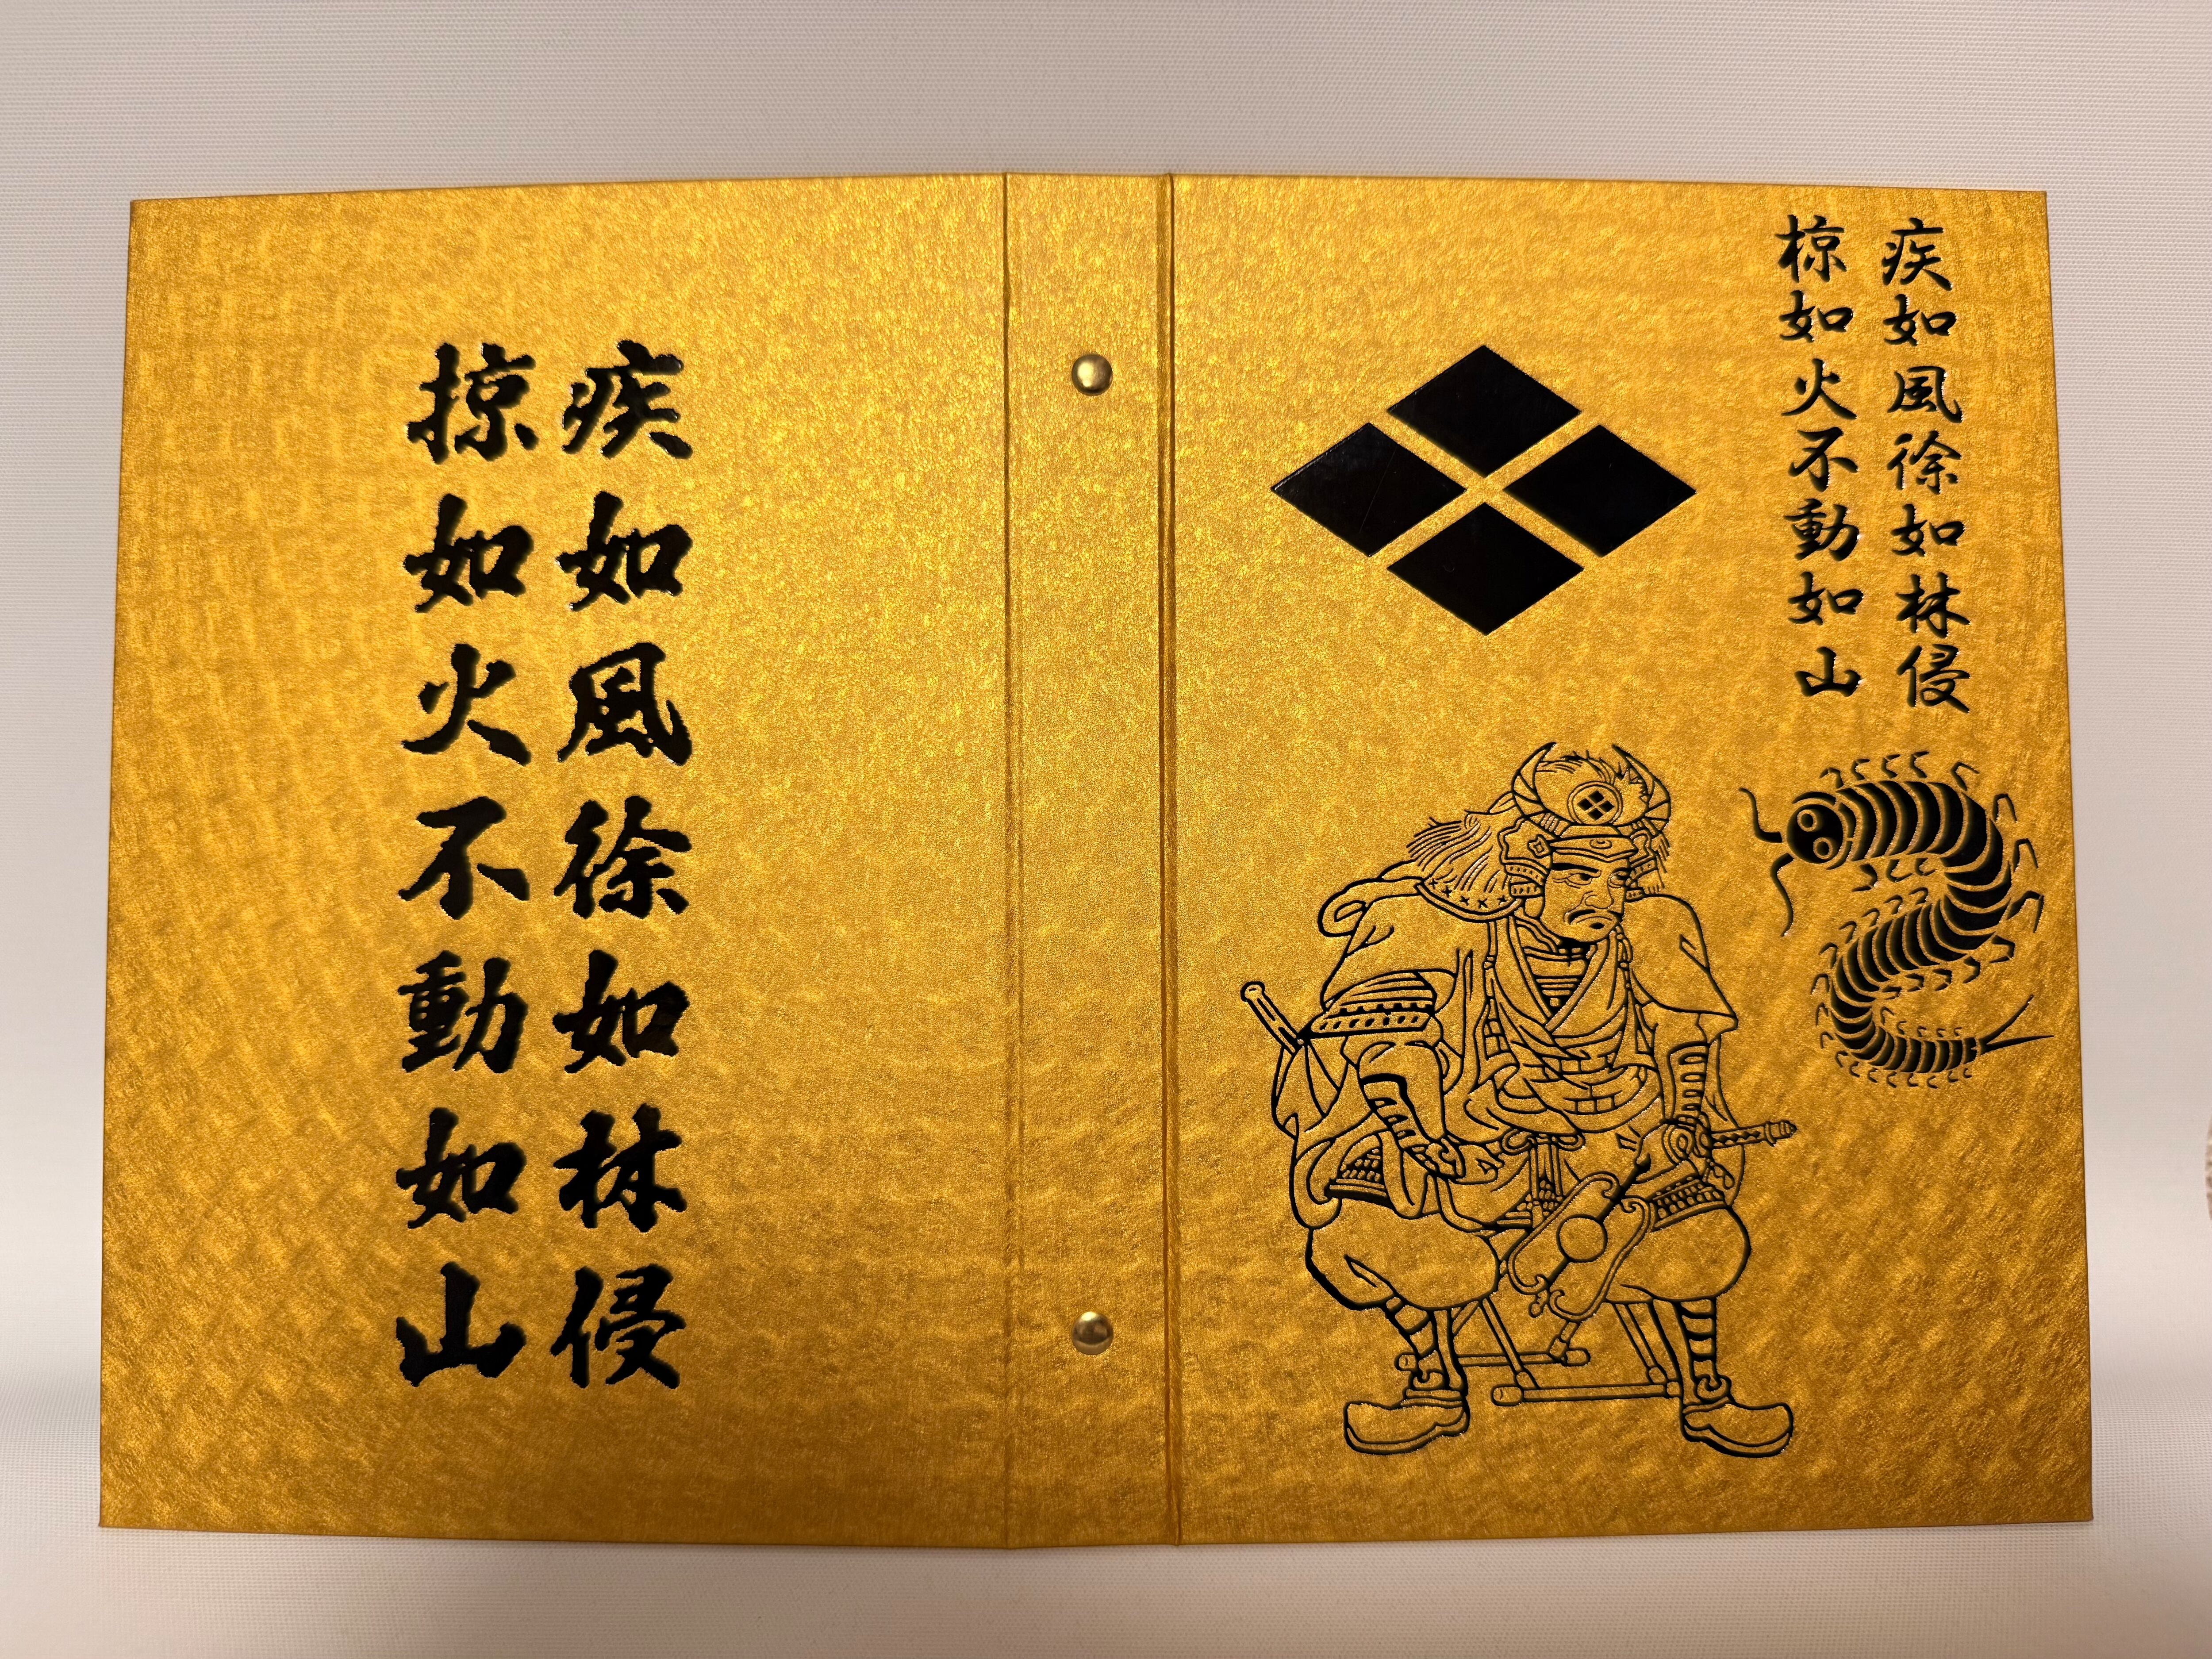 疾如風徐如林侵
椋如火不動如山
疾如風徐如林侵
掠如火不動如山